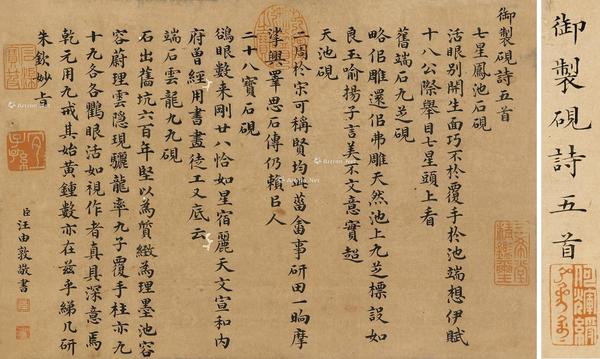 御製硯詩五首
御製硯詩五首
七星鳳池石硯
活眼别開生面巧不於覆手於池端想伊賦
十八公際舉目七星頭上看
舊端石九芝硯
略佀雕還佀弗雕天然池上九芝標設如
良玉喻揚子言美不文意實超
天池硯
二周於宋可稱賢均此菑畬事研田一晌摩
挲興睪思石傳仍賴㠯人
二十八寶石硯
鴝眼數来剛廿八恰如星宿麗天文宣和内
府曾經用書畫徒工又底云
端石雲龍九九硯
石出舊坑六百年堅以為質緻為理墨池容
容蔚理雲隱現驪龍率九子覆手柱亦九
十九各各鸜眼活如視作者真具深意焉
乾元用九戒其始黄鍾數亦在茲乎綈几研
朱欽妙旨
臣汪由敦敬書